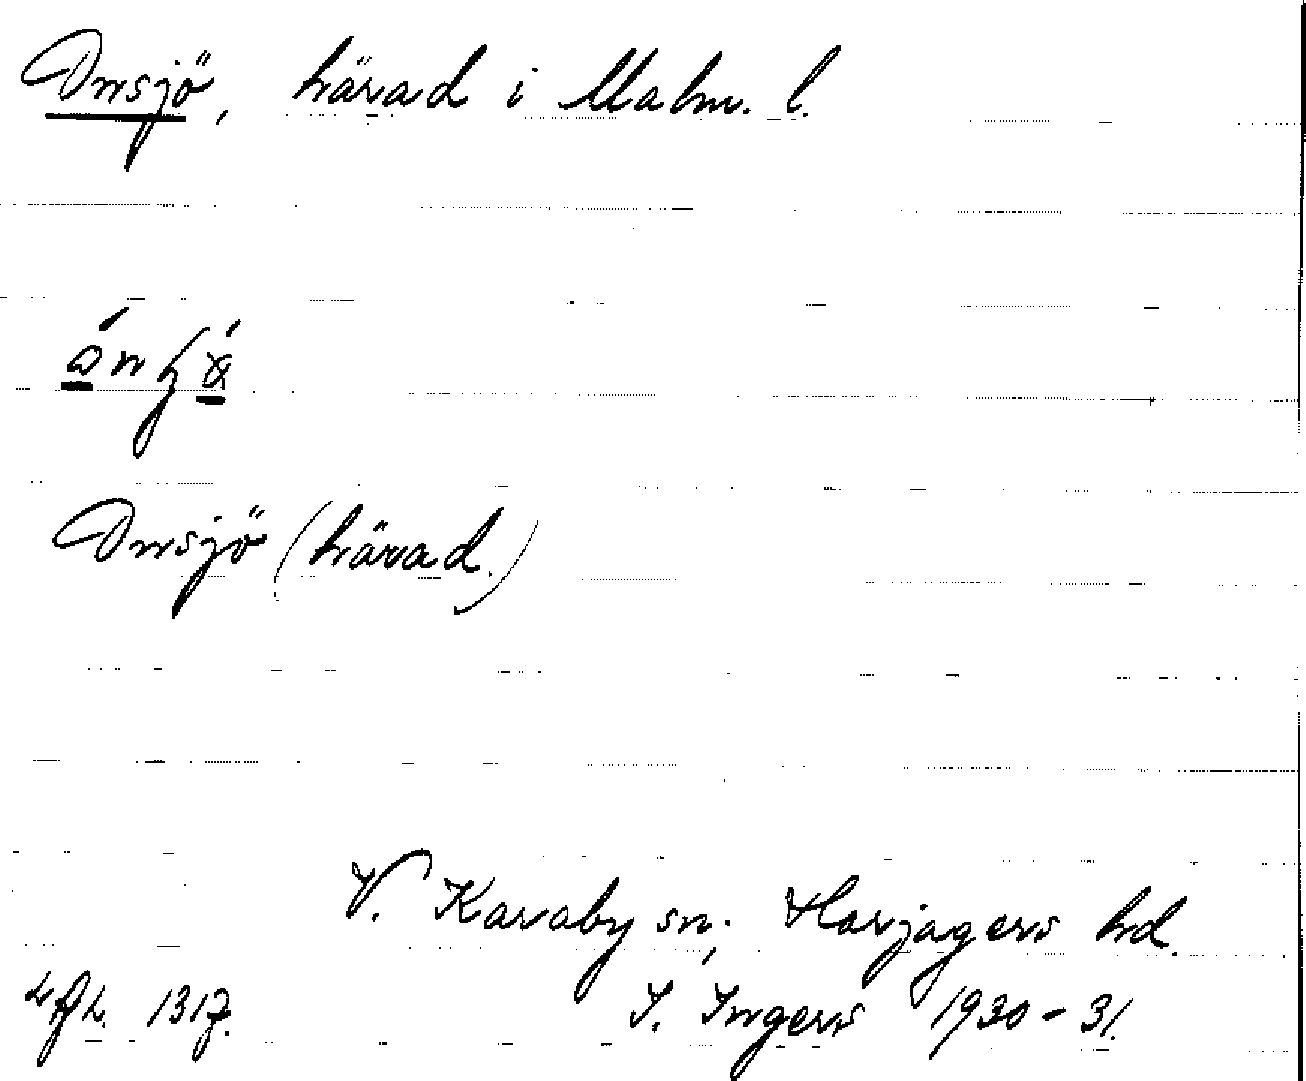 Onsjö, härad i Malm. l.
Onsjö (härad.)
V. Karaby sn; Harjagers hd.
1317. I. Ingers 1930-31.